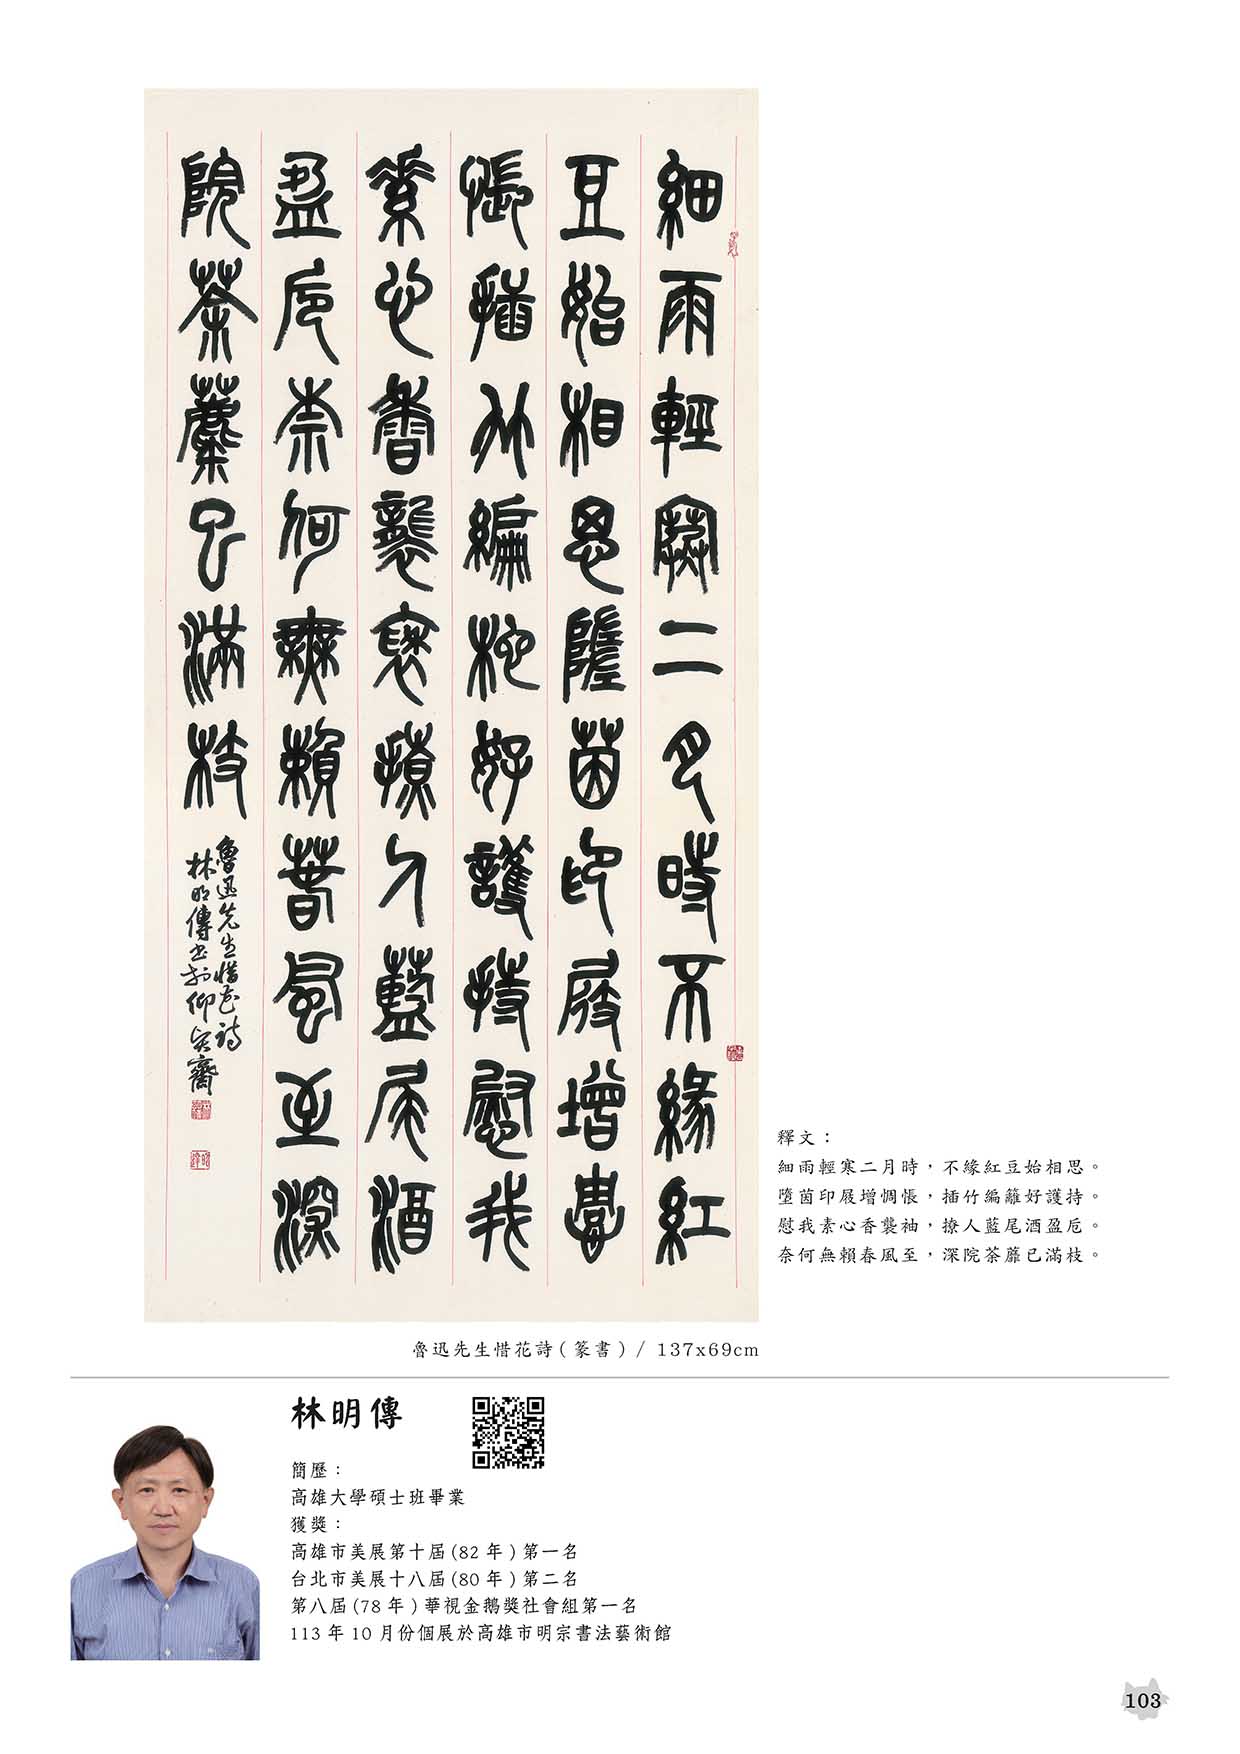 細雨輕寒二月時不緣紅
豆始相思墮茵印屐增惆
悵插竹編籬好護持慰我
素心香襲袖撩人藍尾酒
盈卮奈何無賴春風至深
院荼蘼已滿枝
魯迅先生惜花詩
林明傳書於仰齋
釋文：
細雨輕寒二月時，不緣紅豆始相思。
墮茵印屐增惆悵，插竹編籬好護持。
慰我素心香襲袖，撩人藍尾酒盈卮。
奈何無賴春風至，深院荼蘼已滿枝。
魯迅先生惜花詩(篆書) / 137x69cm
林明傳
簡歷：
高雄大學碩士班畢業
獲獎：
高雄市美展第十屆(82年)第一名
台北市美展十八屆(80年)第二名
第八屆(78年)華視金鵝獎社會組第一名
113年10月份個展於高雄市明宗書法藝術館
103